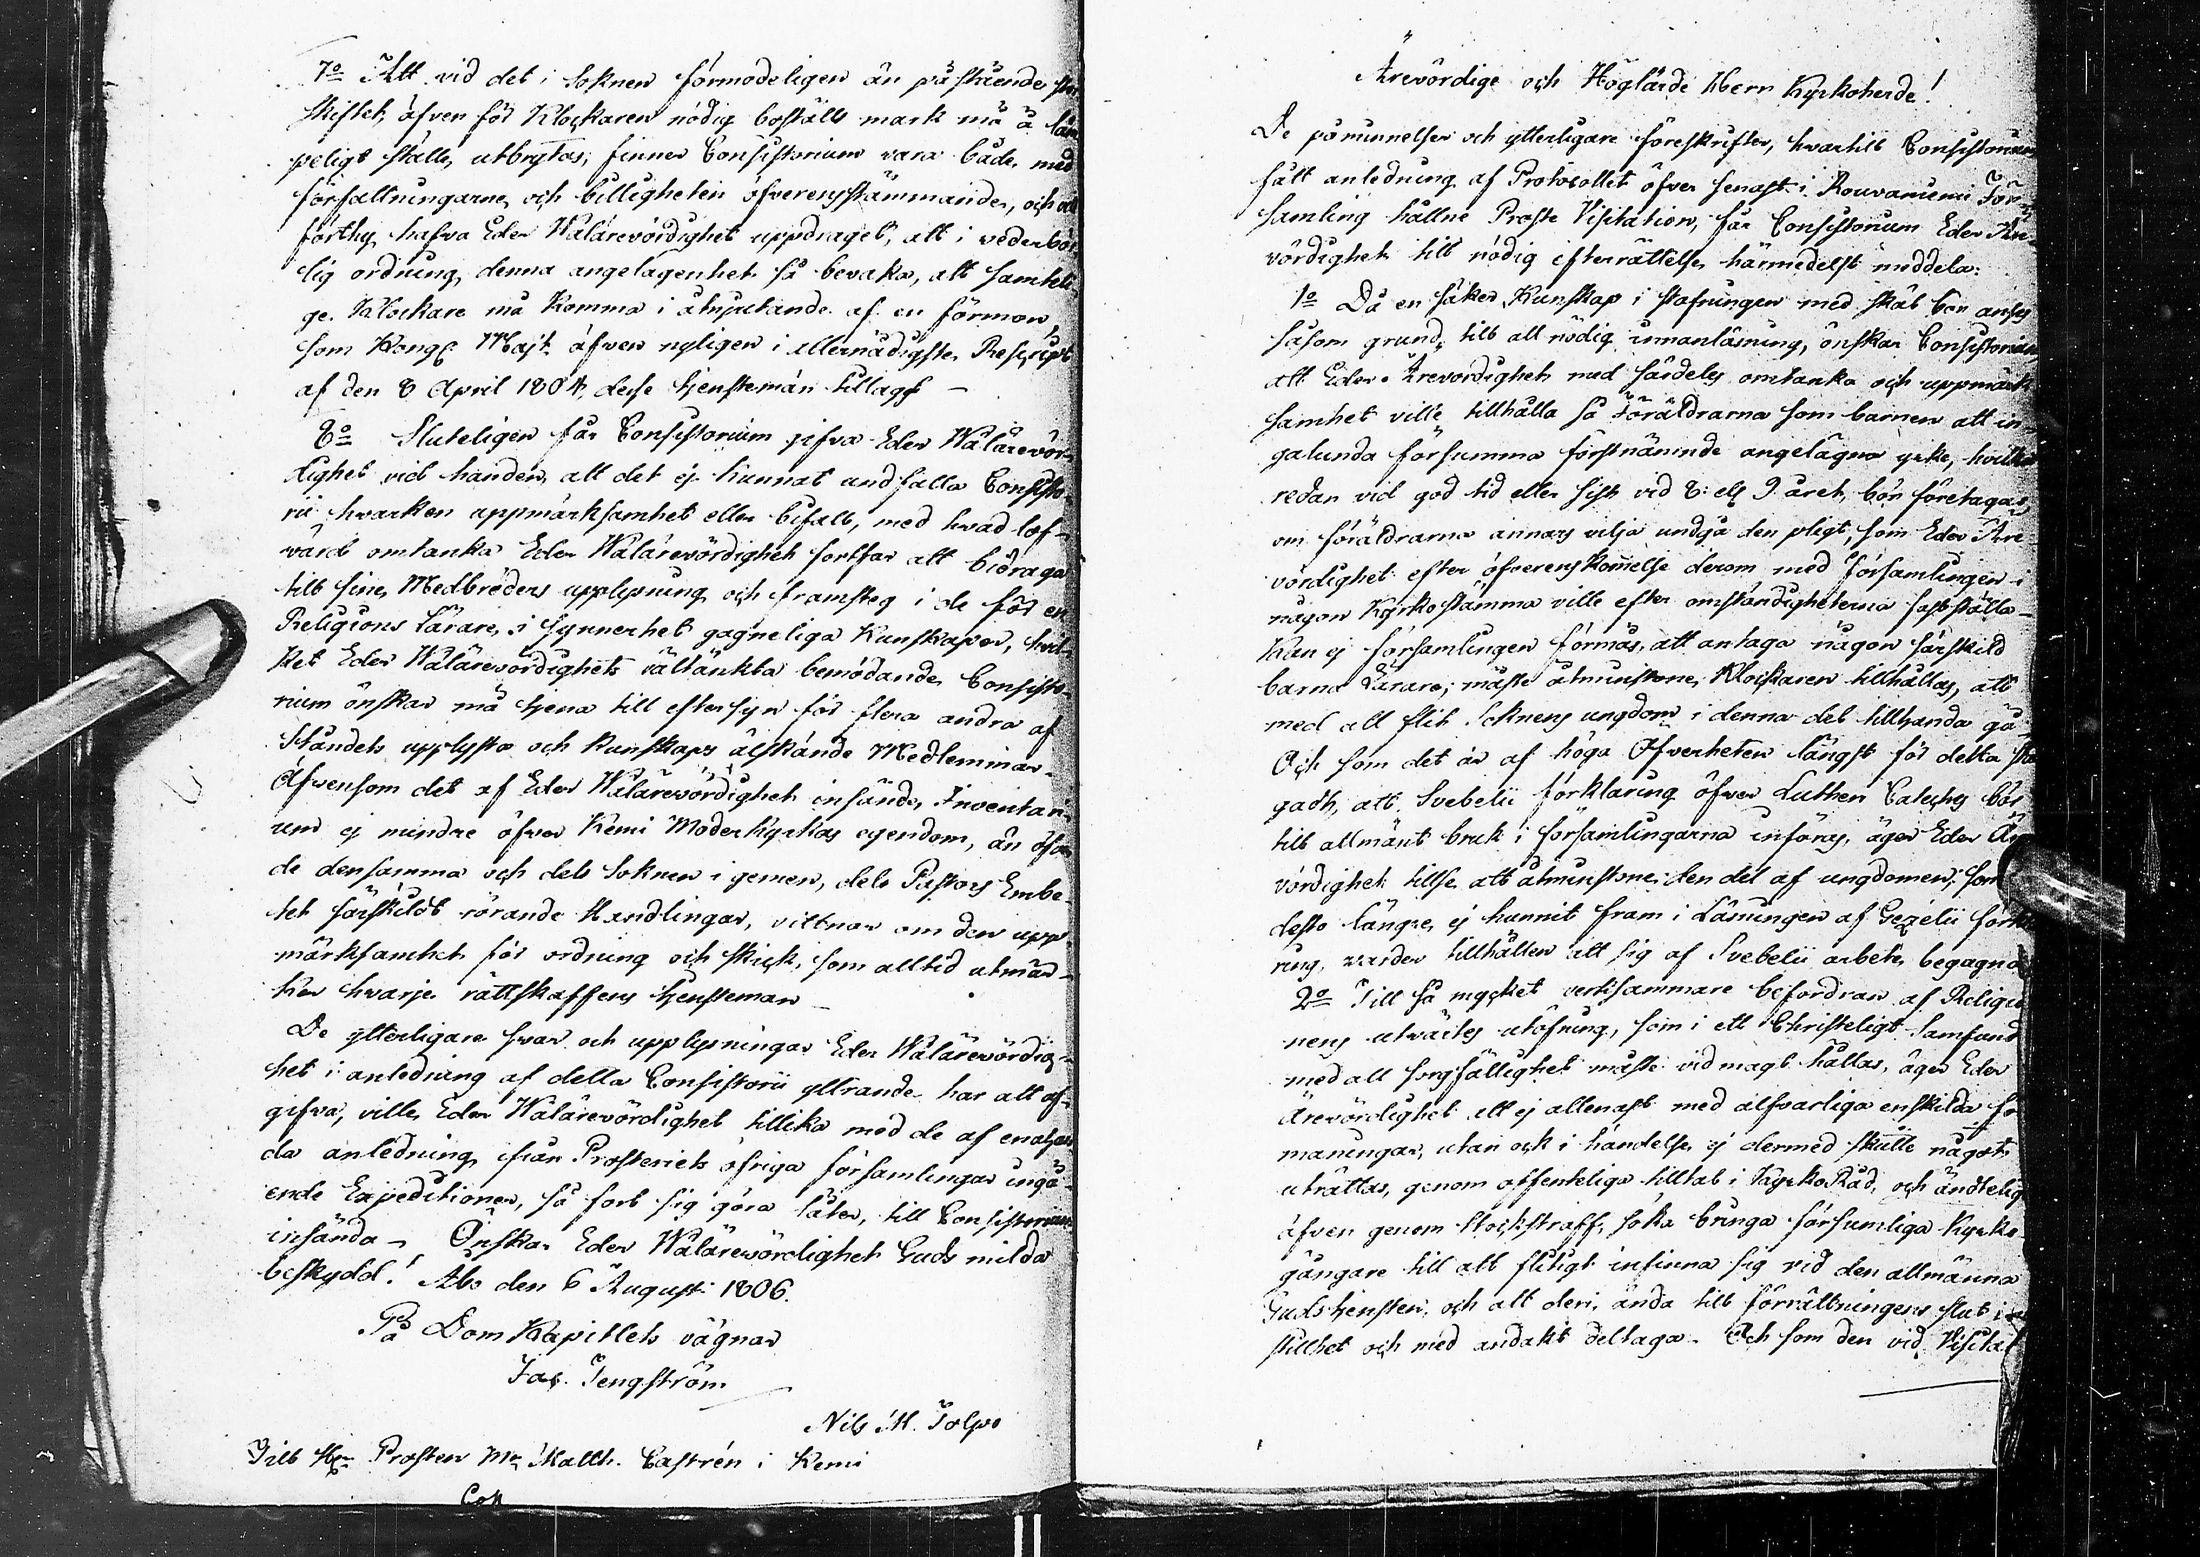 7o Att vid det i Soknen förmodeligen än påstående
skiftet, äfven för Klockaren nödig boställs mark må å läm
peligt ställe, utbrytas, finner Consistorium vara både med
författningarne, och billigheten öfverensstämmande, och
förthy hafva Eder Wälärevördighet uppdraget, att i vederbör
lig ordning, denna angelägenhet så bevaka, att samteli
ge Klockare må komma i åtnjutande af en förmon
som Kongl Majt äfven nyligen i allernådigste Rescript
af den 8 April 1804, desse tjenstemän tillagt —
8o Sluteligen får Consistorium gifva Eder Wälärevör-
dighet vid handen, att det ej kunnat undfalla Consisto-
rii hvarken uppmärksamhet eller bifall, med hvad lof-
värd omtanka Eder Wälärevördighet fortfar att bidraga
till sine Medbröders upplysning och framsteg i de för en
Religions Lärare, i synnerhet gagneliga Kunskaper, hvil-
ket Eder Wälärevördighets vältänkta bemödande Consisto-
rium önskar må tjena till eftersyn för flera andra af
Ståndets upplysta och kunskaps älskande Medlemmar.
Äfvensom det af Eder Wälärevördighet insände Inventari-
um ej mindre öfver Kemi Moderkyrkas egendom, än öfver
de densamma och dels Soknen i gemen, dels Pastors Embe-
tet särskildt rörande Handlingar, vittnar om den upp-
märksamhet för ordning och skick, som alltid utmär-
ker hvarje rättskaffens tjensteman —
De ytterligare svar och upplysningar Eder Wälärevördig-
het i anledning af detta Consistorii yttrande har att af-
gifva, ville Eder Wälärevördighet tillika med de af enahan
da anledning ifrån Prosteriets öfriga församlingar ingå-
ende Expeditioner, så fort sig göra låter, till Consistorium
insända — Önskar Eder Wälärevördighet Guds milda
beskydd! Åbo den 6 Augusti 1806.
På DomKapitlets vägnar
Jac. Tengström
Nils M. Tolpo
Till Hr Prosten Mr Matth. Castrén i Kemi
Ärevördige och Höglärde Herr Kyrkoherde!
De påminnelser och ytterligare föreskrifter, hvartill Consistorium
fått anledning af Protocollet öfver senast i Rouvaniemi För-
samling hållne Proste Visitation, får Consistorium Eder Äre-
vördighet till nödig efterrättelse härmedelst meddela:
1o Då en säker Kunskap i stafningen med skäl bör anses
såsom grund, till all nödig innanläsning, önskar Consistorium
att Eder Ärevördighet med särdeles omtanka och uppmärk
samhet ville tillhålla så Föräldrarna som barnen att in-
galunda försumma förstnämnde angelägna yrke, hvilket
redan vid god tid eller sist vid 8: ell 9 året, bör företagas,
om föräldrarna annars vilja undgå den pligt, som Eder Äre-
vördighet efter öfverenskommelse derom med Församlingen i
någon Kyrkostämma ville efter omständigheterna fastställa —
Kan ej församlingen förmås, att antaga någon särskild
barna Lärare; måste åtminstone Klockaren tillhållas, att
med all flit Soknens ungdom i denna del tillhanda gå
Och som det är af höga Öfverheten längst för detta
gadt, att Svebelii förklaring öfver Lutheri Cateches bör
till allmänt bruk i församlingarna införas, äger Eder Äre
vördighet tillse att åtminstone den del af ungdomen, som
desto längre ej hunnit fram i Läsningen af Gezelii förkla
ring, varder tillhållen att sig af Svebelii arbete begagna
2o Till så mycket verksammare befordran af Religio
nens utvärtes utöfning, som i ett Christeligt Samfund
med all sorgfällighet måste vid magt hållas, äger Eder
Ärevördighet att ej allenast med alfvarliga enskilda för
maningar, utan ock i händelse ej dermed skulle något
uträttas, genom offenteliga tilltal i KyrkoRåd, och ändtelig
äfven genom Stockstraff, söka bringa försumliga Kyrko-
gångare till att flitigt infinna sig vid den allmänna
Gudstjensten, och att deri ända till förrättningens slut i
stillhet och med andakt deltaga. Och som den vid Visitat